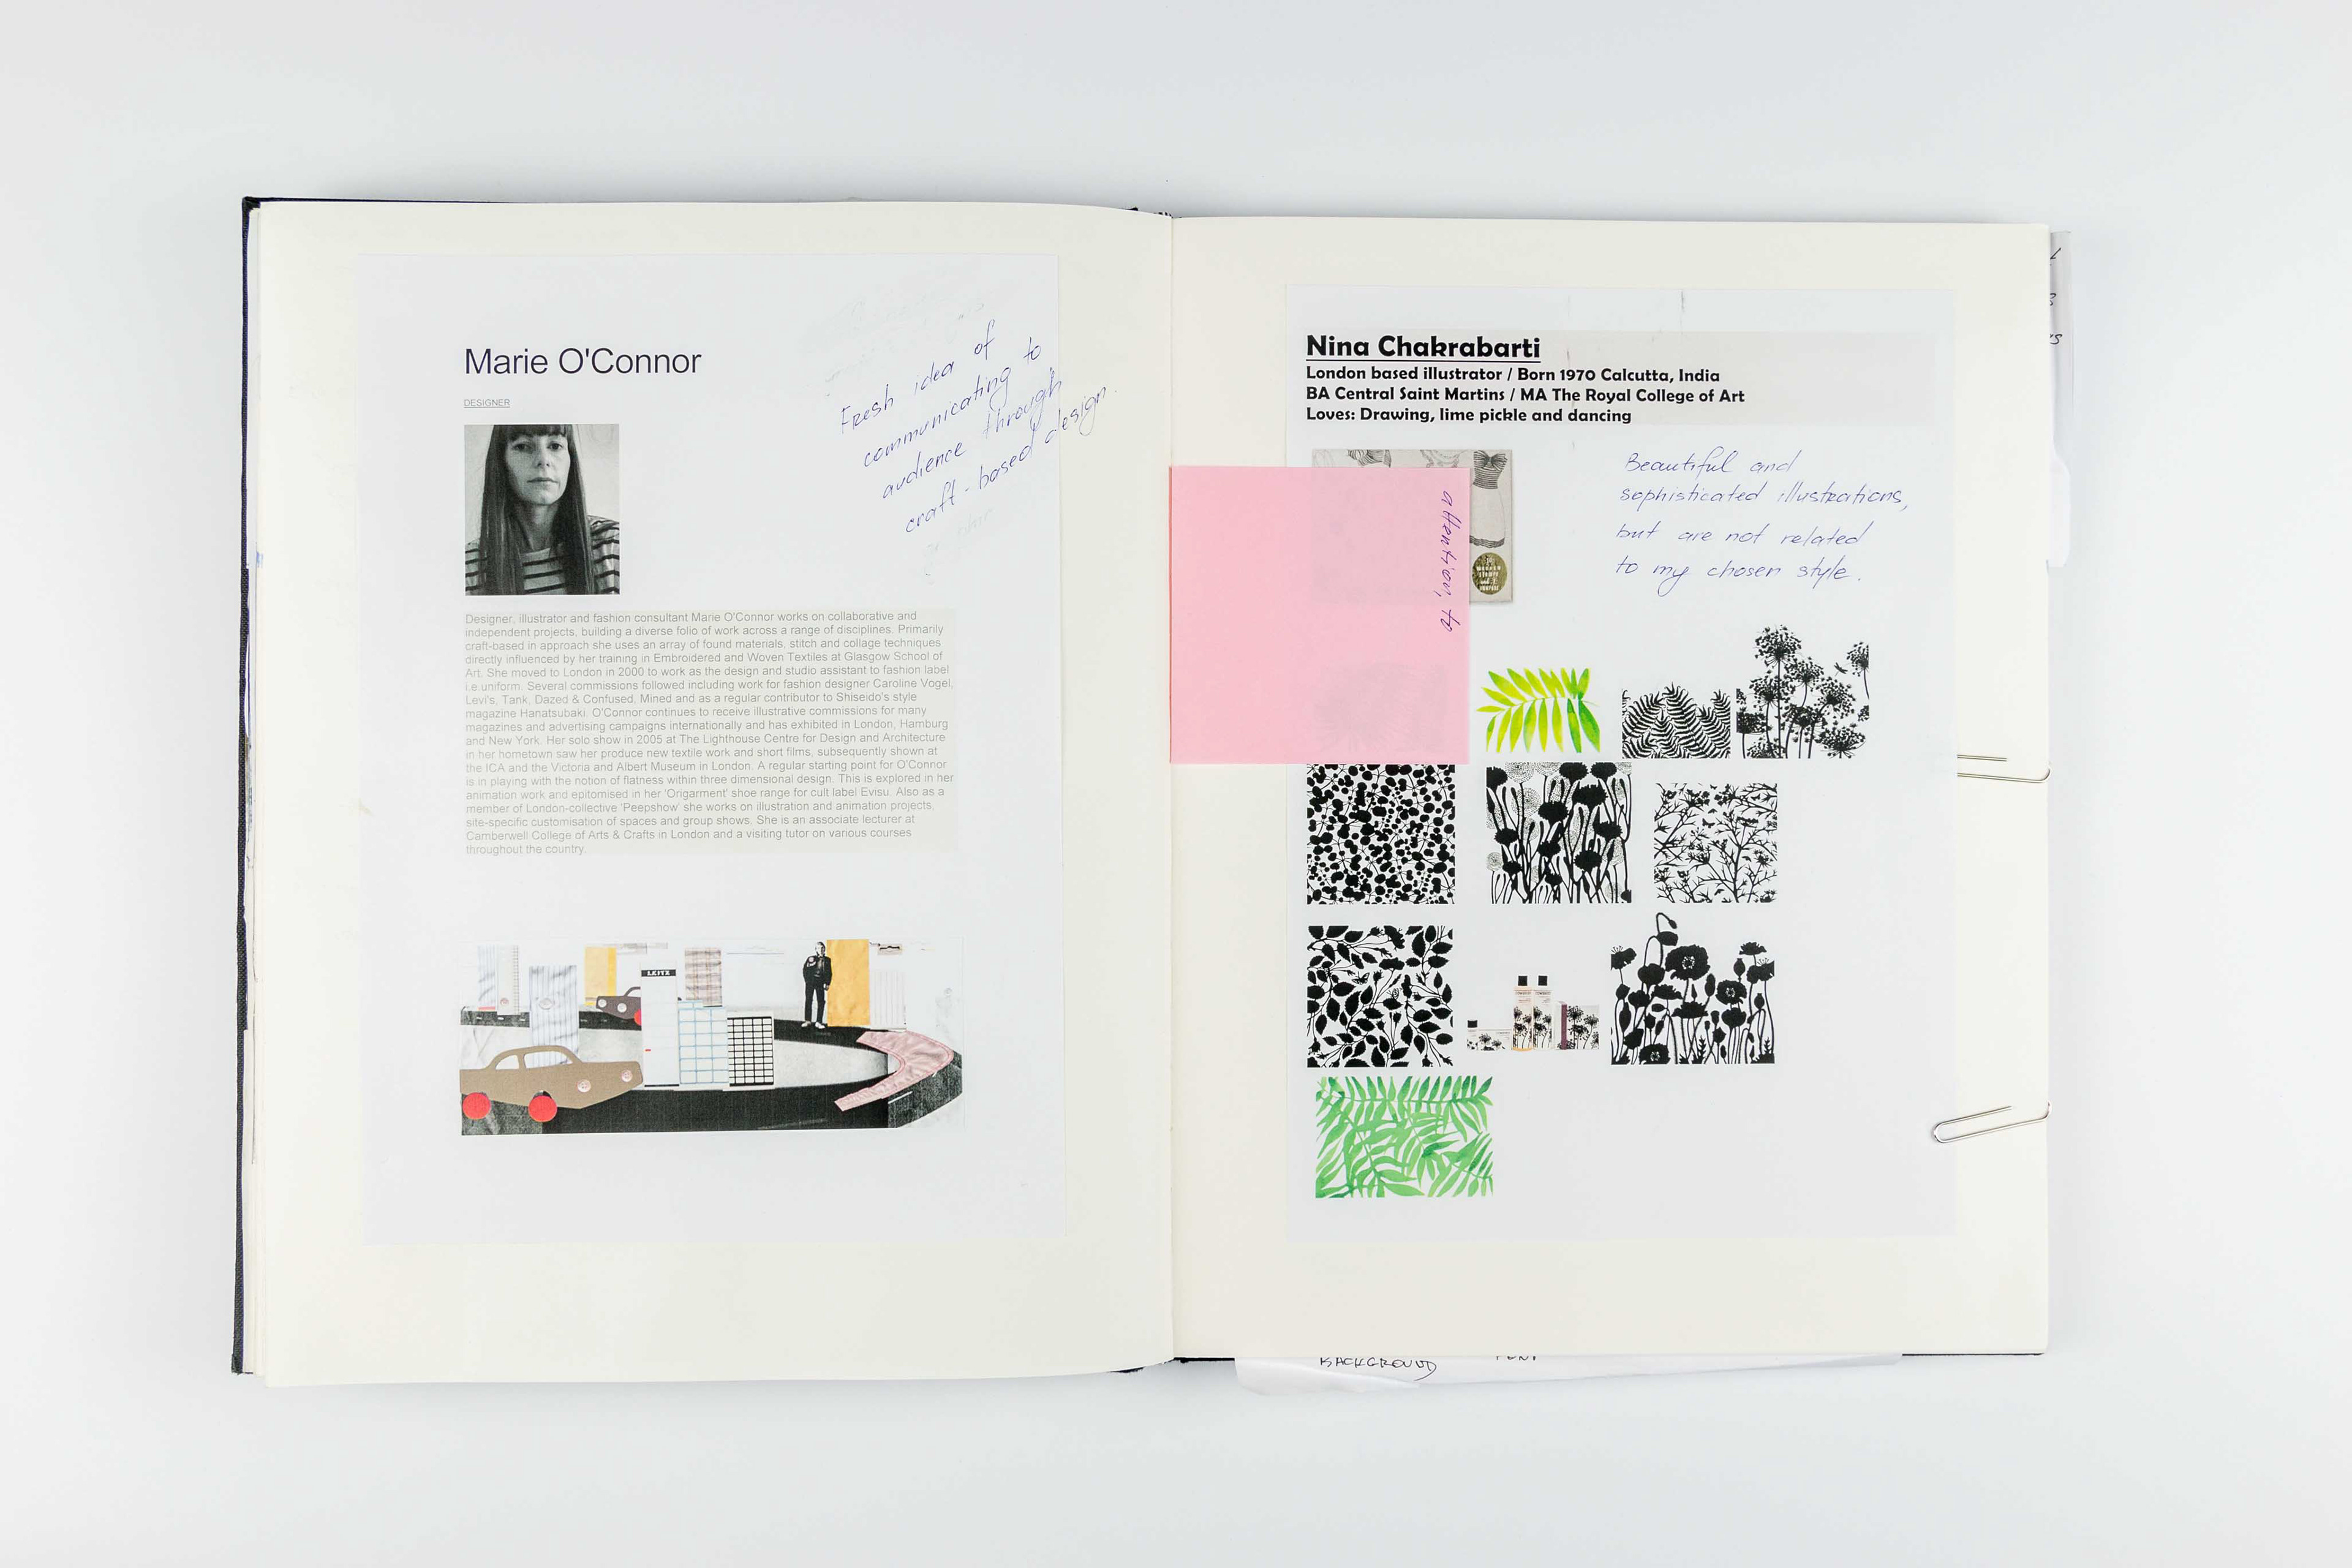 Marie O'Connor
DESIGNER
Fresh idea of
communicating to
audience through
craft-based design.
Designer, illustrator and fashion consultant Marie O'Connor works on collaborative and
independent projects, building a diverse folio of work across a range of disciplines. Primarily
craft-based in approach she uses an array of found materials, stitch and collage techniques
directly influenced by her training in Embroidered and Woven Textiles at Glasgow School of
Art. She moved to London in 2000 to work as the design and studio assistant to fashion label
i.e.uniform. Several commissions followed including work for fashion designer Caroline Vogel,
Levi's, Tank, Dazed & Confused, Mined and as a regular contributor to Shiseido's style
magazine Hanatsubaki. O'Connor continues to receive illustrative commissions for many
magazines and advertising campaigns internationally and has exhibited in London, Hamburg
and New York. Her solo show in 2005 at The Lighthouse Centre for Design and Architecture
in her hometown saw her produce new textile work and short films, subsequently shown at
the ICA and the Victoria and Albert Museum in London. A regular starting point for O'Connor
is in playing with the notion of flatness within three dimensional design. This is explored in her
animation work and epitomised in her 'Origarment' shoe range for cult label Evisu. Also as a
member of London-collective 'Peepshow' she works on illustration and animation projects,
site-specific customisation of spaces and group shows. She is an associate lecturer at
Camberwell College of Arts & Crafts in London and a visiting tutor on various courses
throughout the country.
LEITZ
Nina Chakrabarti
London based illustrator / Born 1970 Calcutta, India
BA Central Saint Martins / MA The Royal College of Art
Loves: Drawing, lime pickle and dancing
attention, to
Beautiful and
sophisticated illustrations,
but are not related
to my chosen style.
BACKGROUND